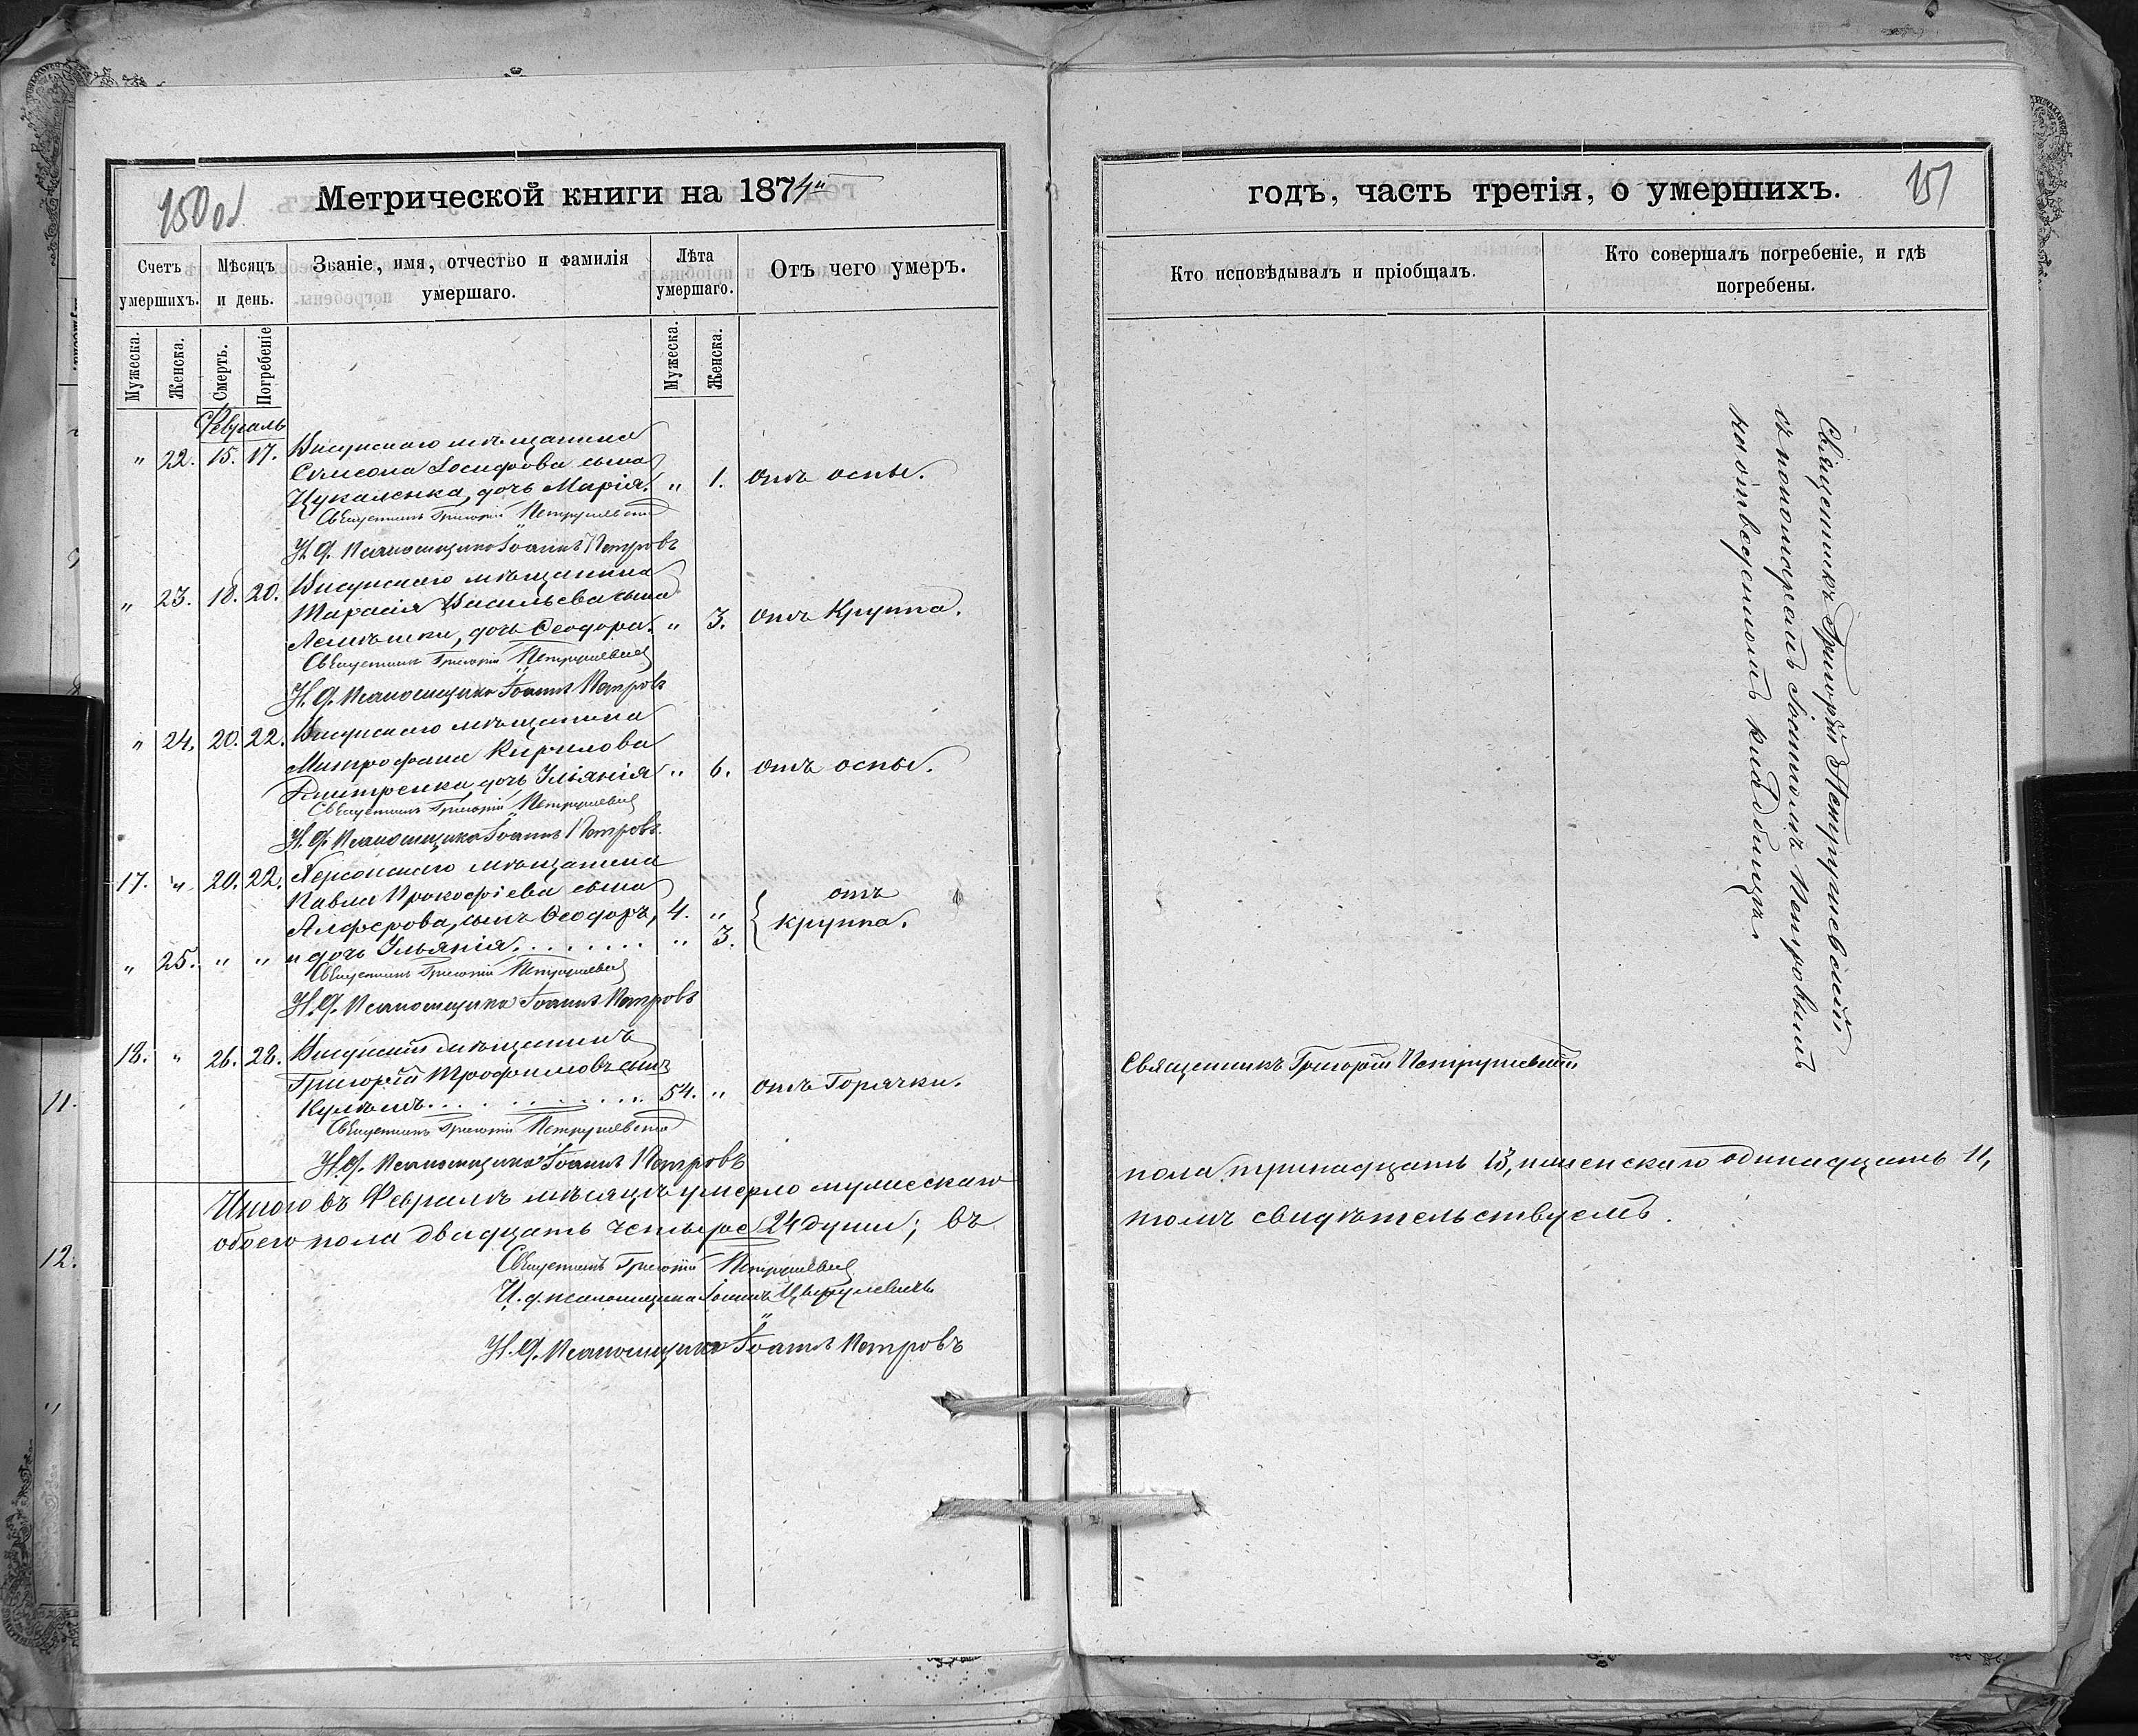 150 об
Метрической книги на 1874й
Счетъ умершихъ.
Мѣсяцъ и день.
Званіе, имя, отчество и фамилія умершаго.
Лѣта умершаго.
Отъ чего умеръ.
Мужеска.
Женска.
Смерть.
Погребеніе
Мужеска.
Женска.
Февраль
" 22. 15. 17. Висунскаго мѣщанина
Самсона Іосифова сына
Цукаленка, дочь Марія. " 1. отъ оспы.
Священникъ Григорій Петрушевскій
И. д. Псаломщика Іоаннъ Петровъ
" 23. 18. 20. Висунскаго мѣщанина
Тарасія Васильева сына
Лемѣшки, дочь Ѳеодора. " 3. отъ Круппа.
Священникъ Григорій Петрушевскій
И. д. Псаломщика Іоаннъ Петровъ
" 24. 20. 22. Висунскаго мѣщанина
Митрофана Кирилова
Дмитренка дочь Уліянія " 6. отъ оспы.
Священникъ Григорій Петрушевскій
И. д. Псаломщика Іоаннъ Петровъ.
17. " 20. 22. Херсонскаго мѣщанина
Павла Прокофіева сына
Алферова, сынъ Ѳеодоръ, 4. " отъ
" 25. " " и дочь Ульянія. " 3. круппа.
Священникъ Григорій Петрушевскій
И. д. Псаломщика Іоаннъ Петровъ
18. " 26. 28. Висунскій мѣщанинъ
Григорій Трофимовъ сынъ
54. " отъ Горячки.
Священникъ Григорій Петрушевскій
И. д. Псаломщика Іоаннъ Петровъ
Итого въ Февралѣ мѣсяцѣ умерло мужескаго
обоего пола двадцать четыре 24 души; въ
Священникъ Григорій Петрушевскій
И. д. псаломщика Іоаннъ
И. д. Псаломщика Іоаннъ Петровъ
годъ, часть третія, о умершихъ.
151
Кто исповѣдывалъ и пріобщалъ.
Кто совершалъ погребеніе, и гдѣ погребены.
Священникъ Григорій Петрушевскій
съ пономаремъ Іоанномъ Петровымъ
на отведенномъ кладбищѣ.
Священникъ Григорій Петрушевскій.
пола тринадцать 13, женскаго одинадцать 11,
томъ свидѣтельствуемъ.